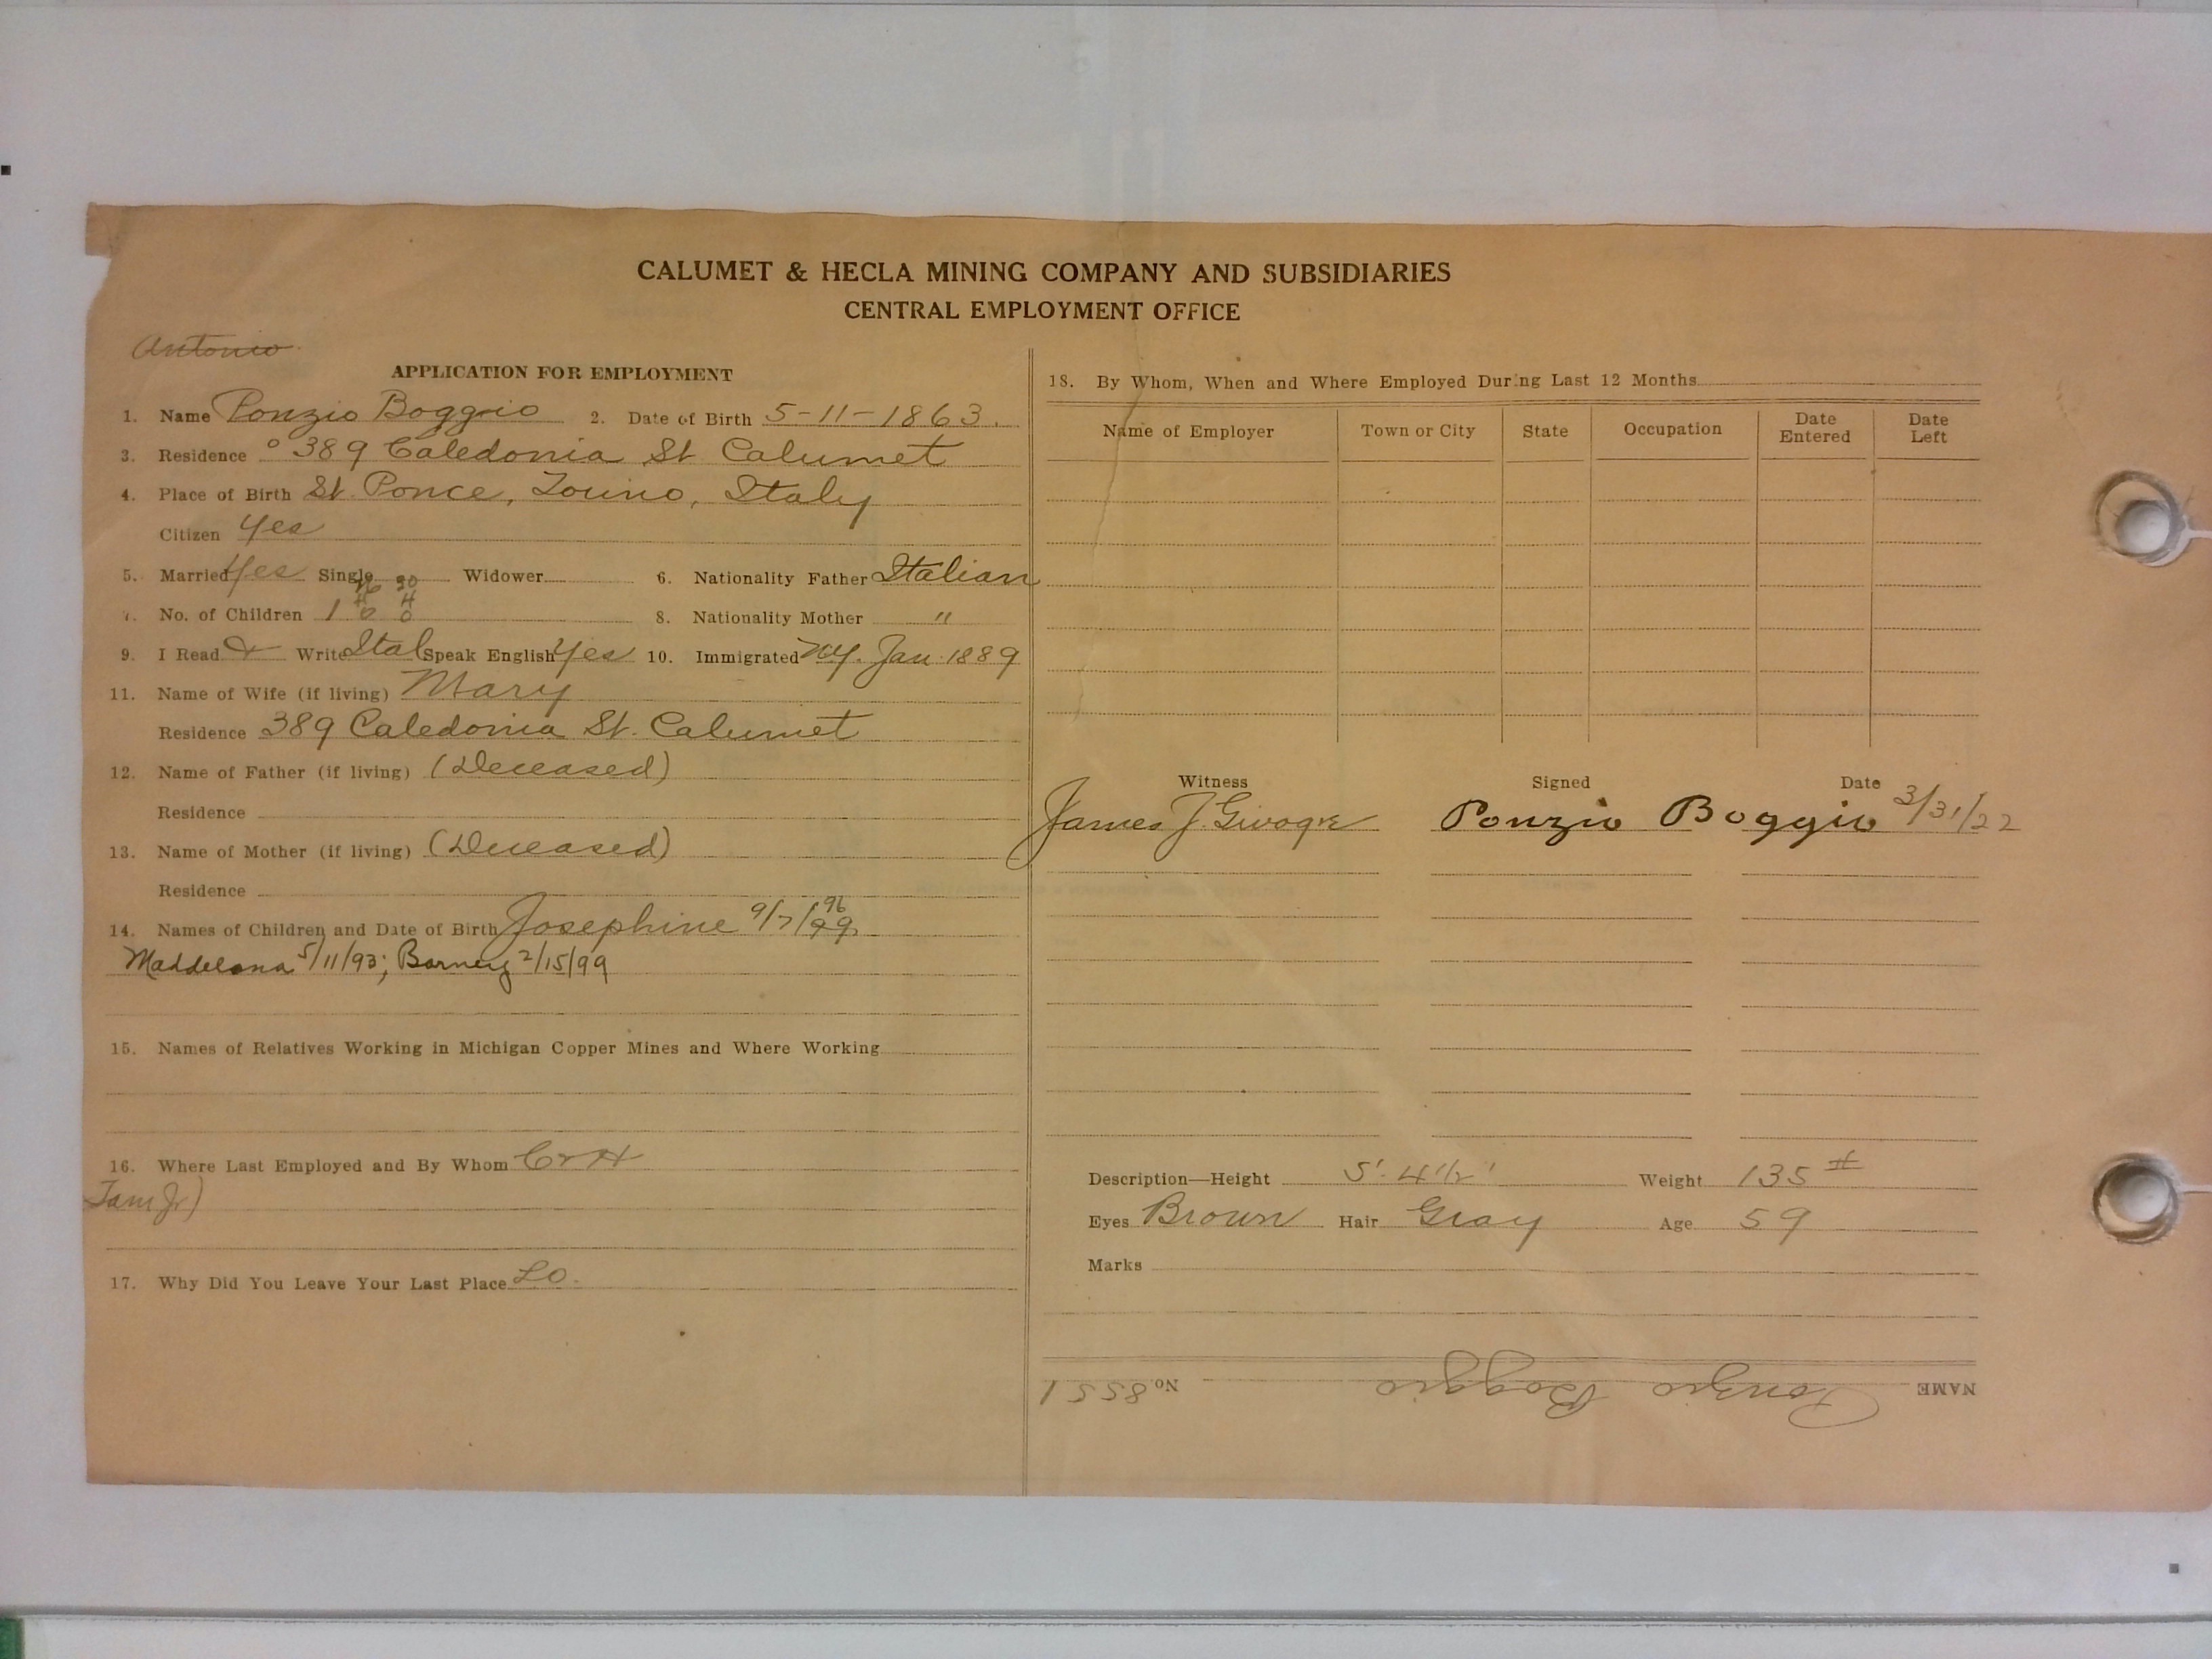 CALUMET & HECLA MINING COMPANY AND SUBSIDIARIES
CENTRAL EMPLOYMENT OFFICE
Antonio
APPLICATION FOR EMPLOYMENT
1. Name Ponzio Boggio 2. Date of Birth 5-11-1863.
3. Residence 389 Caledonia St Calumet
4. Place of Birth St. Ponce, Torino, Italy
Citizen Yes
5. Married Yes Single Widower 6. Nationality Father Italian
7. No. of Children 1 8. Nationality Mother "
9. I Read & Write Ital Speak English Yes 10. Immigrated NY. Jan 1889
11. Name of Wife (if living) Mary
Residence 389 Caledonia St. Calumet
12. Name of Father (if living) (Deceased)
Residence
13. Name of Mother (if living) (Deceased)
Residence
14. Names of Children and Date of Birth Josephine 9/7/99 96
Maddelona 5/11/93; Barney 2/15/99
15. Names of Relatives Working in Michigan Copper Mines and Where Working
16. Where Last Employed and By Whom C & H
Tam Jr)
17. Why Did You Leave Your Last Place LO.
18. By Whom, When and Where Employed During Last 12 Months
Name of Employer Town or City State Occupation Date Entered Date Left
Witness Signed Date
James J. Ponzio Boggio 3/31/22
Description—Height 5' 4 1/2 ' Weight 135 #
Eyes Brown Hair Gray Age 59
Marks
NAME Ponzio Boggio No 8551